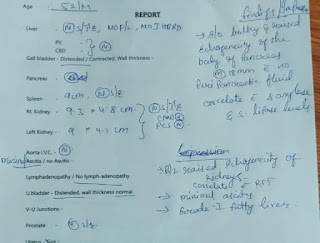 Age : 52/M
REPORT
Liver : (N) S/T/E, NO F/L, NO IHBRD
PV
CBD : (N)
Gall bladder - Distended / Contracted, Wall thickness -
Pancreas
Spleen 9cm, (N) S/E
Rt. Kidney - 9.3 x 4.8 cm
Left Kidney - 9 x 4.1 cm
(N) S/T/E
CMD (N)
PCS (N)
Aorta I.V.C. - (N)
Ascitis / no Ascitis - Minimal
Lymphadenopathy / No lymph-adenopathy
U.bladder - Distended, wall thickness normal
V-U Junctions -
Prostate - (N) S/E
Uterus Size -
- E/O bulky & raised
echogenicity of the
body of Pancreas
18mm & no
Peri Pancreatic fluid
correlate E S. amylase
& S. lipase levels
Impression
- B/L raised echogenicity of
kidneys
correlate E RFT
- minimal ascitis
- Grade-I fatty liver.